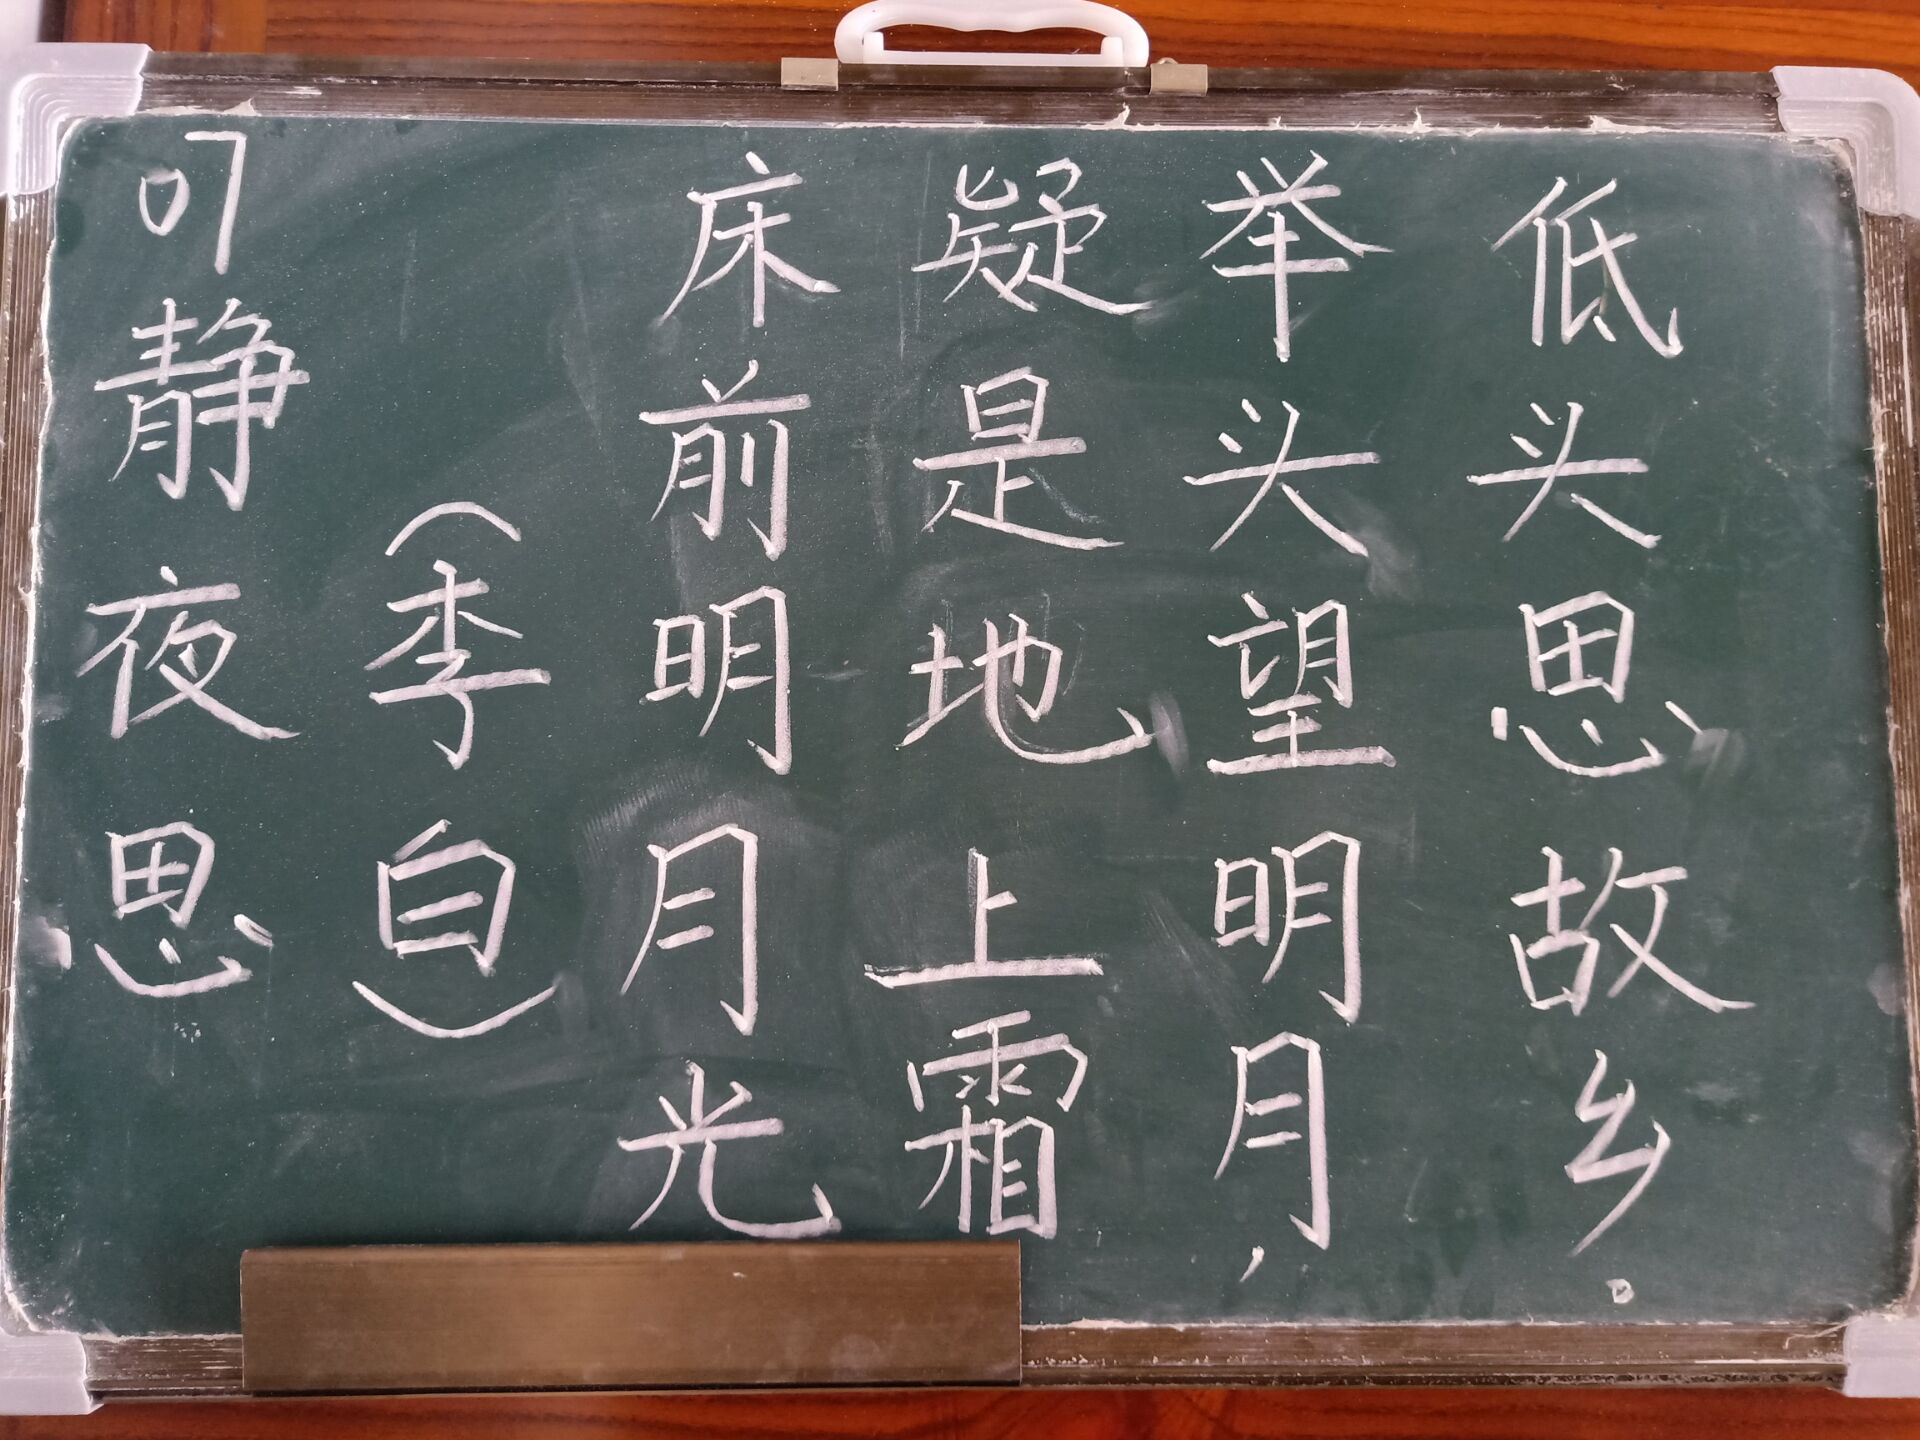 07静夜思
（李白）
床前明月光
疑是地上霜
举头望明月，
低头思故乡。